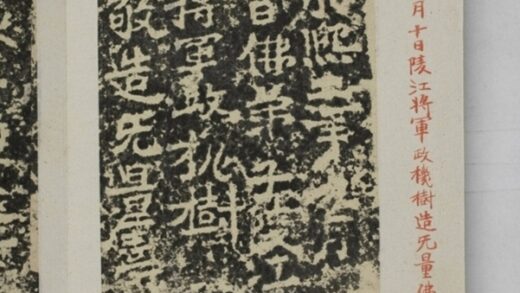 月十日陵江將軍政機樹造无量佛
熙二年九月
日佛弟子陵江
將軍政机樹
敬造无量壽